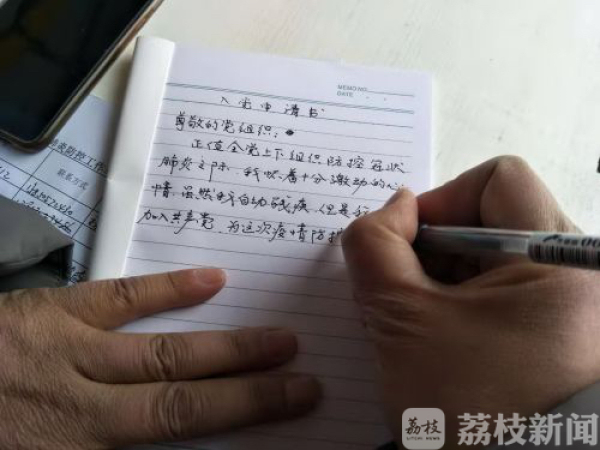 MEMO NO.
DATE
入党申请书
尊敬的党组织:
正值全党上下组织防控冠状
肺炎之际,我怀着十分激动的心
情,虽然我自幼残疾,但是我
加入共产党,为这次疫情防护
炎防控工作
联系方式
荔枝
LITCHI NEWS
荔枝新闻